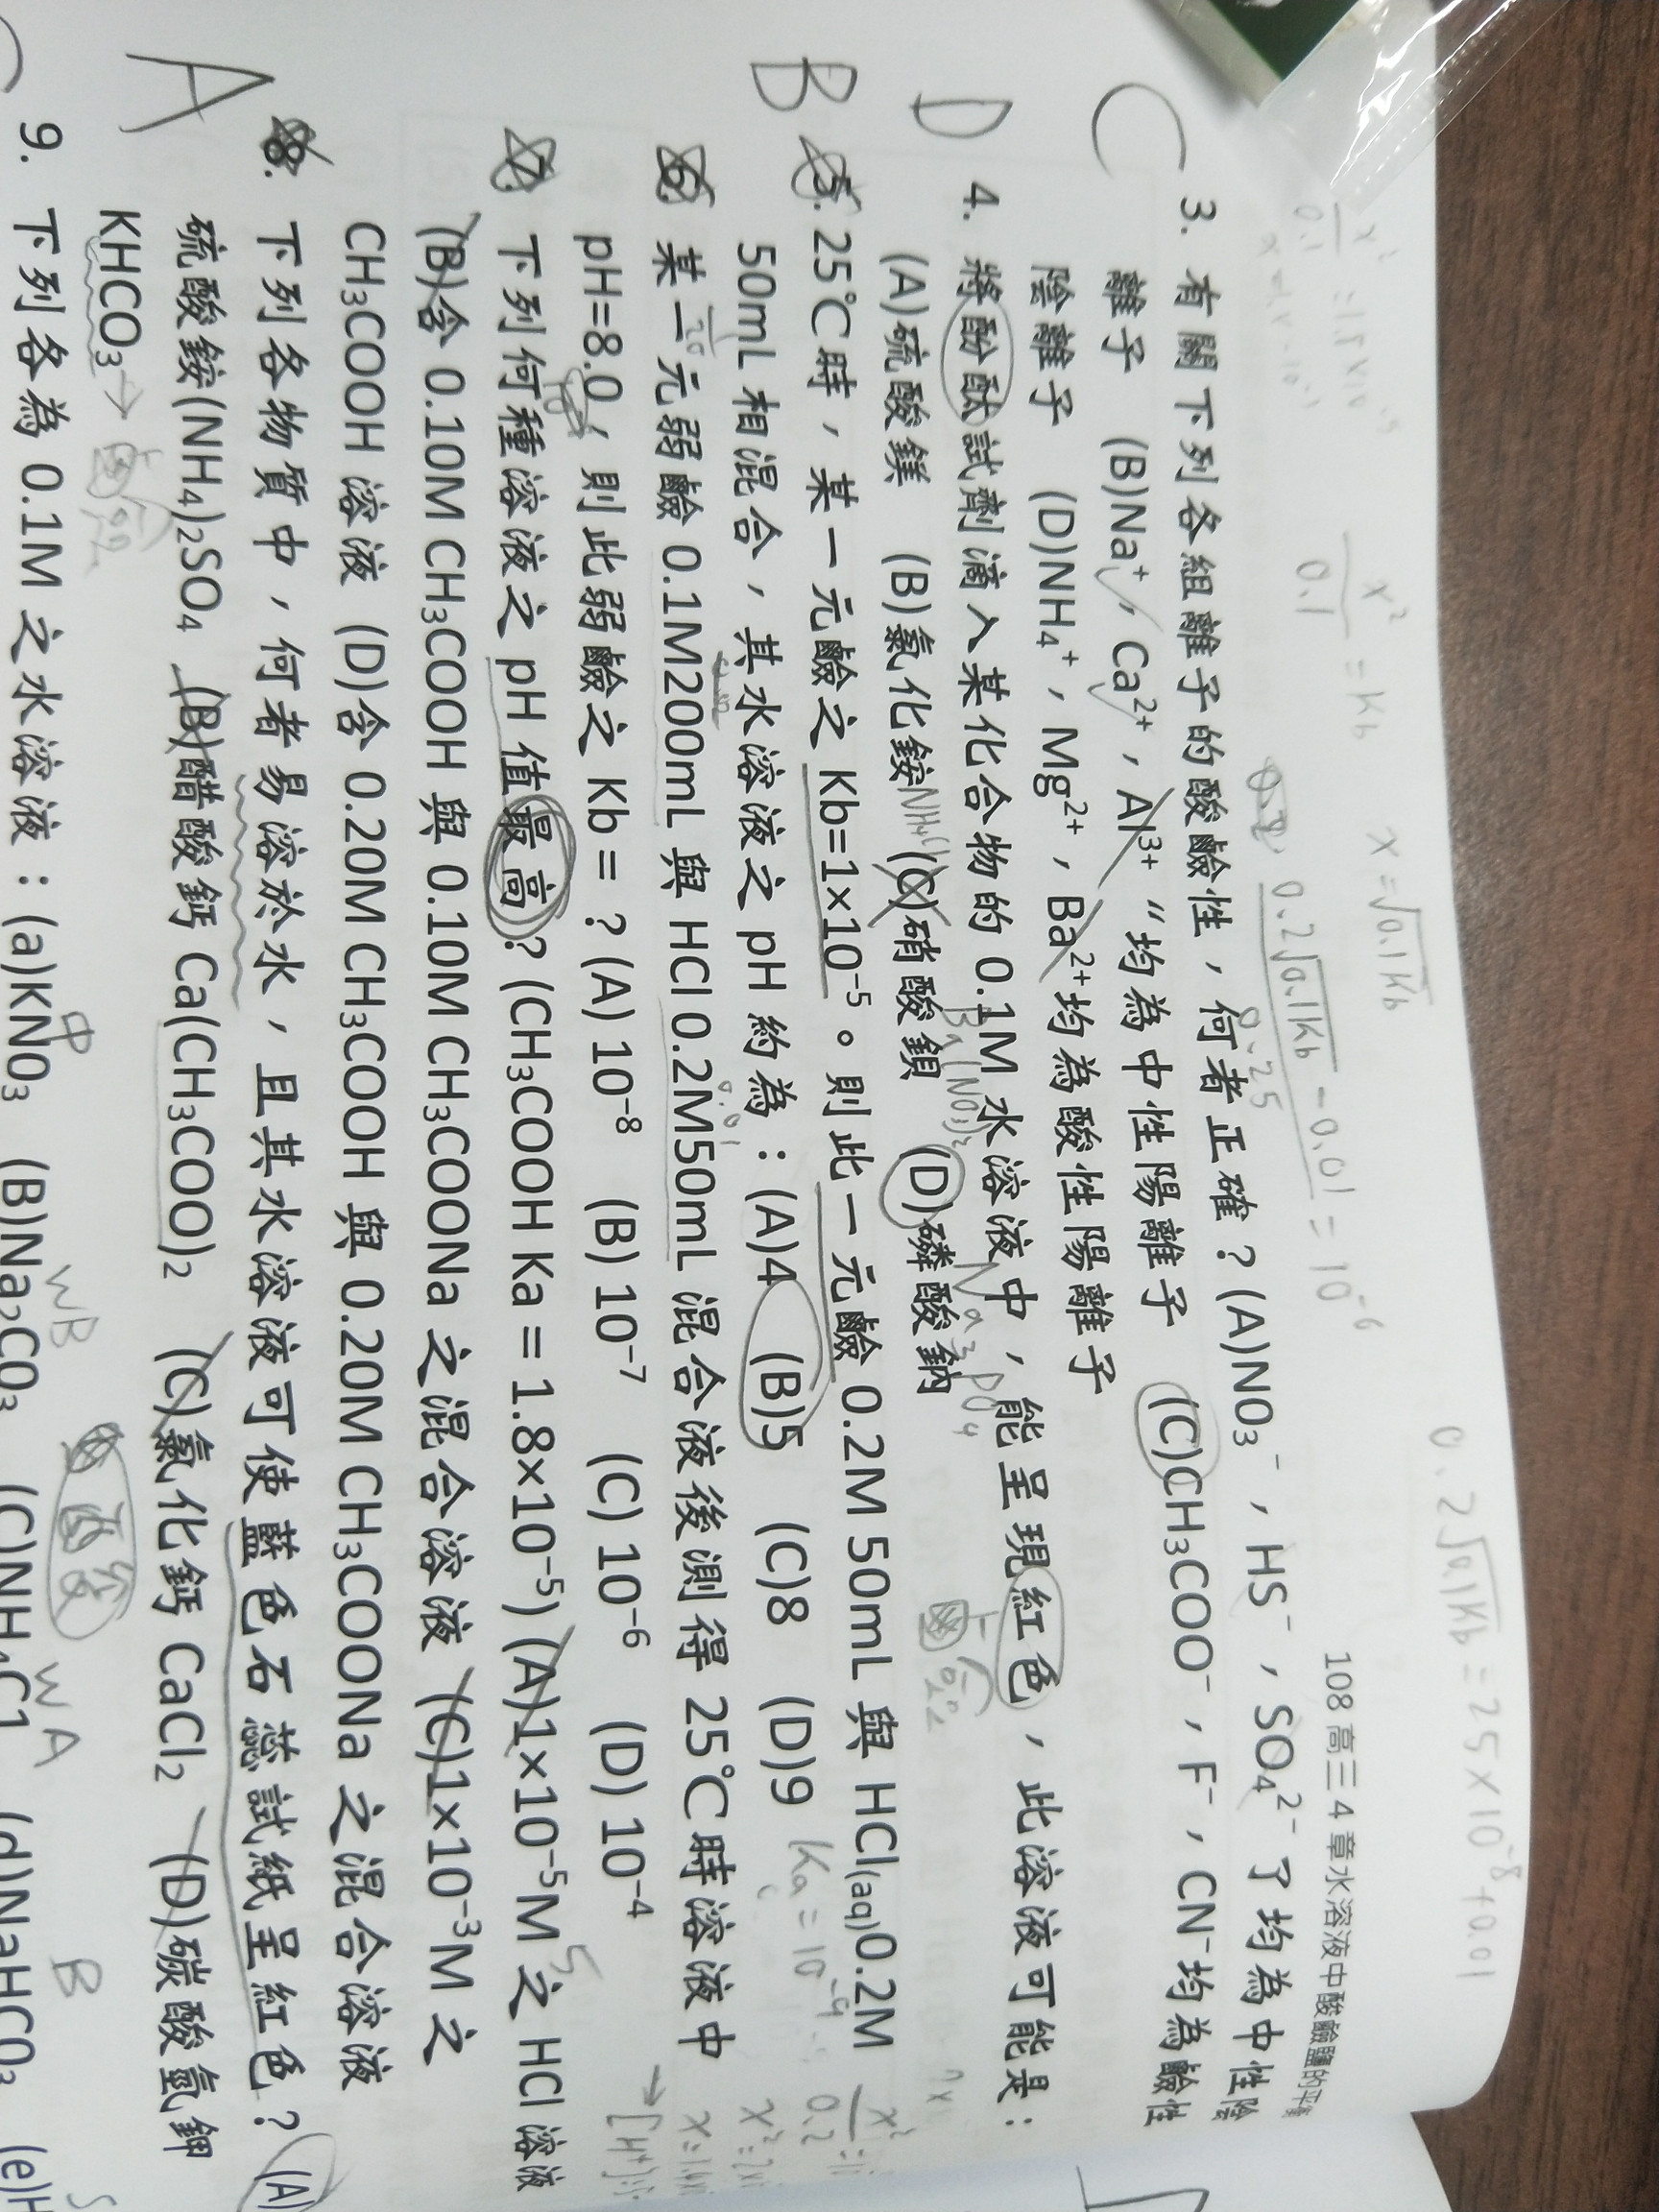 108 高三 4 章水溶液中酸鹼鹽的平衡
0.2√0.1Kb = 25×10⁻⁸+0.01
x²/0.1 = Kb x=√0.1Kb
0.2√0.1Kb - 0.01 = 10⁻⁶
0.25
C
3. 有關下列各組離子的酸鹼性，何者正確？(A)NO₃⁻，HS⁻，SO₄²⁻了均為中性陰
離子 (B)Na⁺，Ca²⁺，Al³⁺“均為中性陽離子 (C)CH₃COO⁻，F⁻，CN⁻均為鹼性
陰離子 (D)NH₄⁺，Mg²⁺，Ba²⁺均為酸性陽離子
D
4. 將酚酞試劑滴入某化合物的 0.1M 水溶液中，能呈現紅色，此溶液可能是：
(A)硫酸鎂 (B)氯化銨 (C)硝酸鋇 (D)磷酸鈉
NH₄Cl Ba(NO₃)₂ Na₃PO₄
B
5. 25℃時，某一元鹼之 Kb=1×10⁻⁵。則此一元鹼 0.2M 50mL 與 HCl(aq)0.2M
50mL 相混合，其水溶液之 pH 約為：(A)4 (B)5 (C)8 (D)9
Ka = 10⁻⁹
6. 某一元弱鹼 0.1M200mL 與 HCl 0.2M50mL 混合液後測得 25℃時溶液中
pH=8.0，則此弱鹼之 Kb = ? (A) 10⁻⁸ (B) 10⁻⁷ (C) 10⁻⁶ (D) 10⁻⁴
7. 下列何種溶液之 pH 值最高? (CH₃COOH Ka = 1.8×10⁻⁵) (A)1×10⁻⁵M 之 HCl 溶液
5
(B)含 0.10M CH₃COOH 與 0.10M CH₃COONa 之混合溶液 (C)1×10⁻³M 之
CH₃COOH 溶液 (D)含 0.20M CH₃COOH 與 0.20M CH₃COONa 之混合溶液
A
8. 下列各物質中，何者易溶於水，且其水溶液可使藍色石蕊試紙呈紅色？ (A)
硫酸銨(NH₄)₂SO₄ (B)醋酸鈣 Ca(CH₃COO)₂ (C)氯化鈣 CaCl₂ (D)碳酸氫鉀
KHCO₃
中 WB WA B
9. 下列各為 0.1M 之水溶液：(a)KNO₃ (B)Na₂CO₃ (C)NH₄Cl (d)NaHCO₃